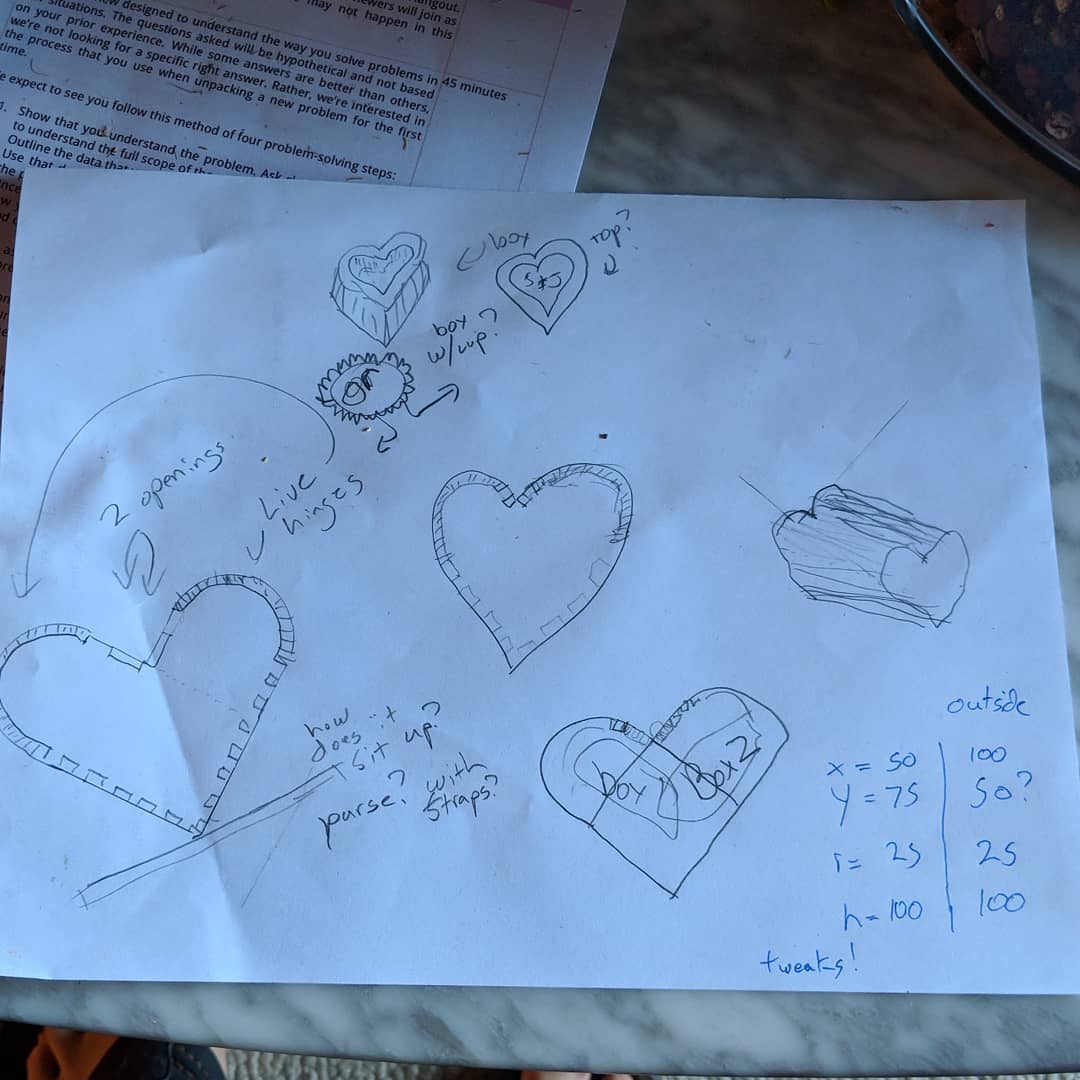 hangout.
viewers will join as
may not happen in this
designed to understand the way you solve problems in
situations. The questions asked will be hypothetical and not based
on your prior experience. While some answers are better than others,
we're not looking for a specific right answer. Rather, we're interested in
the process that you use when unpacking a new problem for the first
time.
45 minutes
expect to see you follow this method of four problem-solving steps:
1. Show that you understand the problem. Ask
to understand the full scope of
Outline the data that
Use that
box
top?
S+J
box
w/cup?
or
2 openings
Live
hinges
how
does it
sit up?
purse? with
straps?
box 1
Box 2
outside
x = 50 | 100
y = 75 | 50?
r = 25 | 25
h = 100 | 100
tweaks!